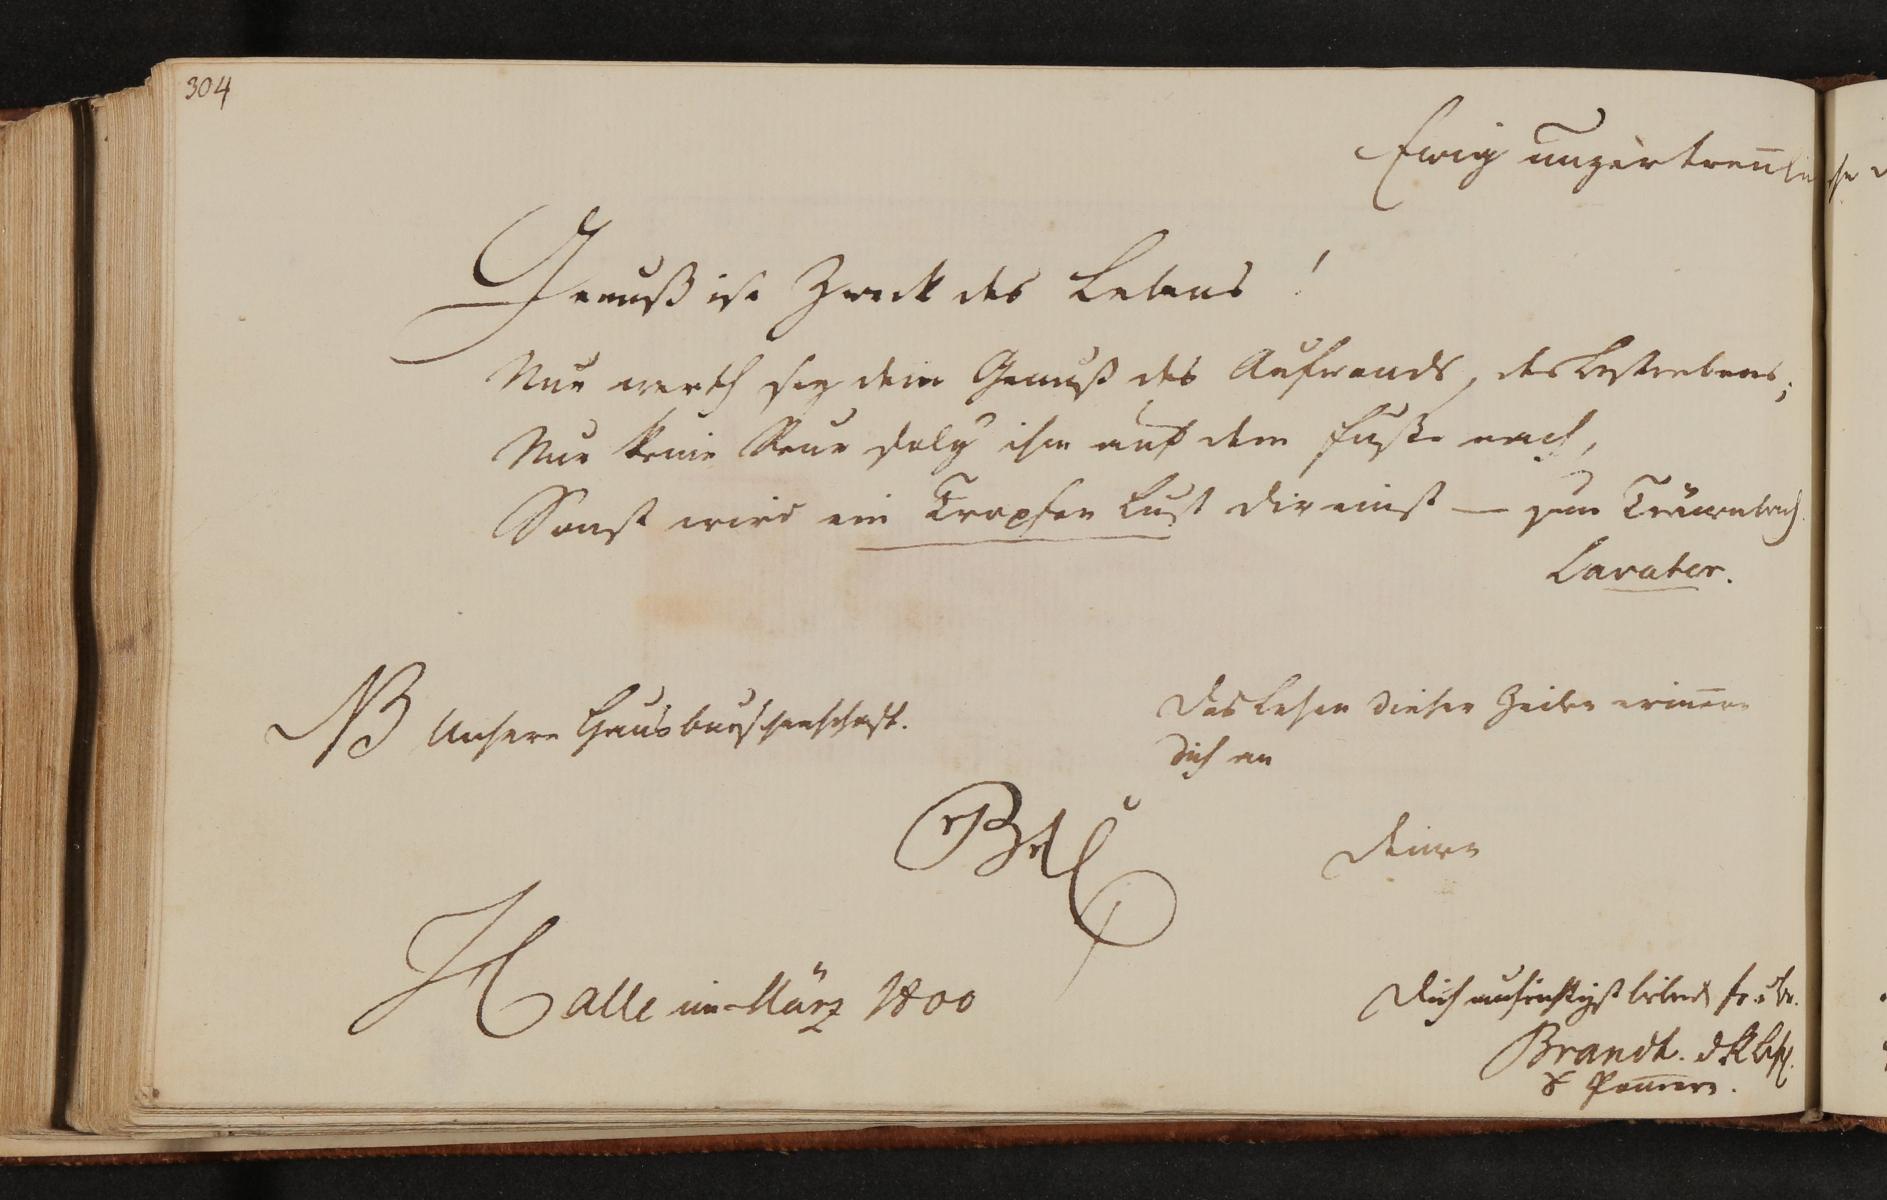 304
Ewig unzertrennli
Genuß ist Zweck des Lebens!
Nur werth sey dein Genuß des Aufwands, des Bestrebens;
Nur keine Reue folg' ihm auf dem Fuße nach,
Sonst wird ein Tropfen Lust dir einst — zum Thränenbach.
Lavater.
NB Unsere Hausburschenschaft.
Das Lesen dieser Zeilen erinnere
Dich an
Deinen
Halle im März 1800
Dich aufrichtigst liebend
Brandt. d. R. Bfl.
Pommern.